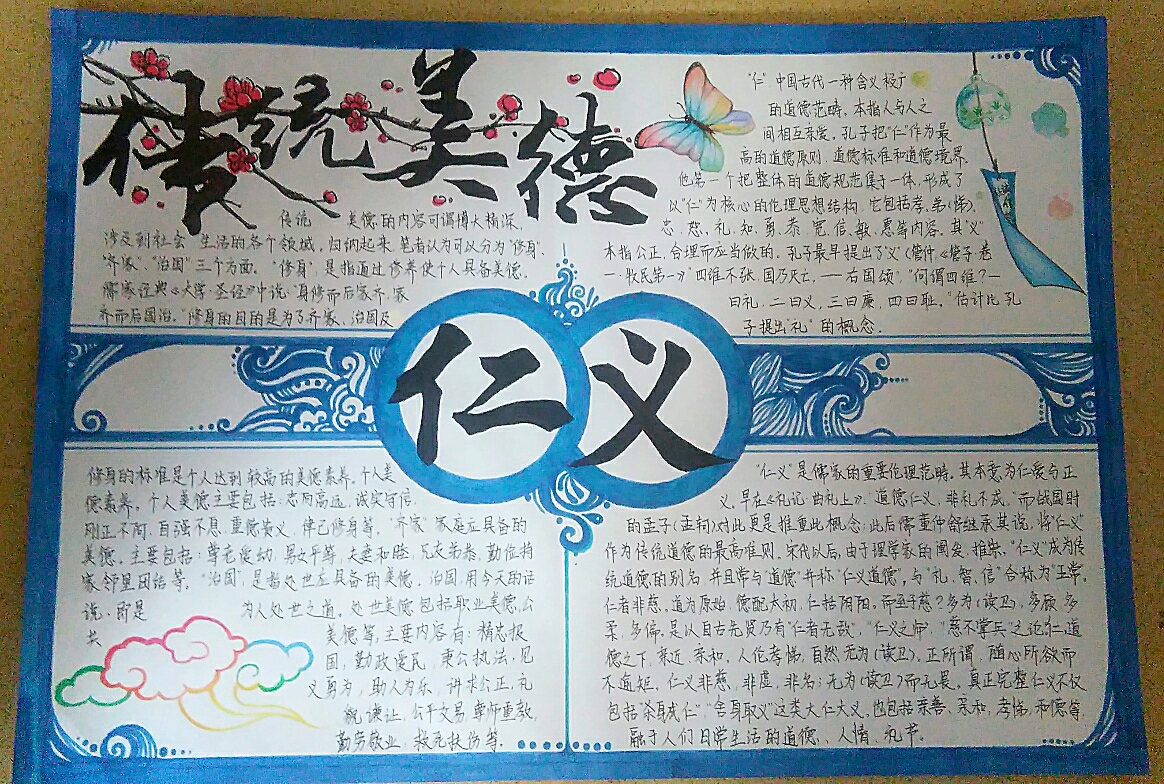 传统美德
传统 美德的内容可谓博大精深,
涉及到社会 生活的各个领域,归纳起来,笔者认为可以分为"修身"、
"齐家"、"治国"三个方面。"修身",是指通过修养使个人具备美德。
儒家经典《大学·圣经》中说:"身修而后家齐,家
齐而后国治。"修身的目的是为了齐家、治国及
"仁"中国古代一种含义极广
的道德范畴。本指人与人之
间相互亲爱。孔子把"仁"作为最
高的道德原则、道德标准和道德境界。
他第一个把整体的道德规范集于一体,形成了
以"仁"为核心的伦理思想结构,它包括孝、弟(悌)、
忠、恕、礼、知、勇、恭、宽、信、敏、惠等内容。其"义"
本指公正、合理而应当做的。孔子最早提出了"义"《管仲《管子·卷
一·牧民第一》"四维不张,国乃灭亡。——右国颂","何谓四维?一
曰礼,二曰义,三曰廉,四曰耻。"估计比孔
子提出"礼"的概念。
仁义
修身的标准是个人达到较高的美德素养。个人美
德素养,个人美德主要包括:志向高远,诚实守信,
刚正不阿,自强不息,重德贵义,律己修身等。"齐家"家庭应具备的
美德。主要包括:尊老爱幼,男女平等,夫妻和睦,兄友弟恭,勤俭持
家,邻里团结等。"治国",是指处世应具备的美德。治国,用今天的话
说,即是 为人处世之道。处世美德包括职业美德,公
共 美德等,主要内容有:精忠报
国,勤政爱民,秉公执法,见
义勇为,助人为乐,讲求公正,礼
貌谦让,公平交易,尊师重教,
勤劳敬业,救死扶伤等。
"仁义"是儒家的重要伦理范畴。其本意为仁爱与正
义。早在《礼记·曲礼上》:"道德仁义,非礼不成,"而战国时
的孟子(孟轲)对此更是推重此概念;此后儒董仲舒继承其说,将"仁义"
作为传统道德的最高准则。宋代以后,由于理学家的阐发、推崇,"仁义"成为传
统道德的别名,并且常与"道德"并称"仁义道德"。与"礼、智、信"合称为"五常"。
仁者非慈。道为原始,德配太初,仁括阴阳。而至于慈?多为(读卫),多顾,多
柔,多偏。是以自古先贤乃有"仁者无敌","仁义之师","慈不掌兵"之论仁,道
德之下,亲近,亲和,人伦孝悌,自然,无为(读卫)。正所谓,随心所欲而
不逾矩。仁义非慈,非虚,非名;无为(读卫)而无畏。真正完整仁义不仅
包括"杀身成仁","舍身取义"这类大仁大义,也包括亲善、亲和,孝悌,和德等,
融于人们日常生活的道德、人情、礼节。